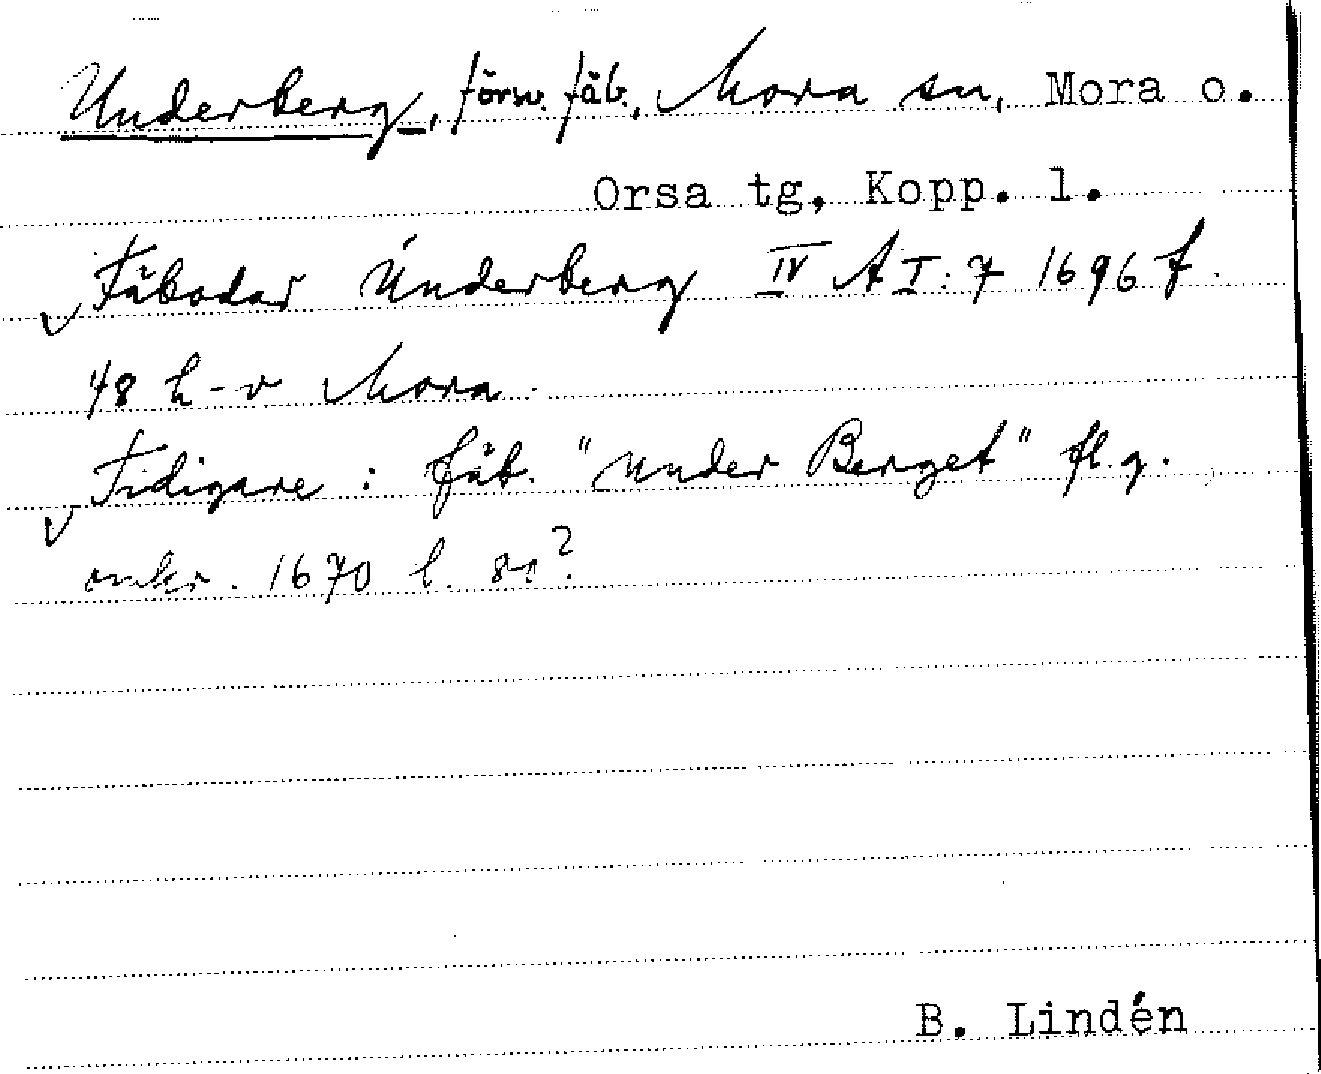 Underberg, försv. fäb., Mora sn, Mora o.
Orsa tg, Kopp. l.
Fäbodar Underberg IV A I:7 1696 f.
48 h-v Mora
Tidigare: fäb. "under Berget" fl.g.
omkr. 1670 l.
B. Lindén